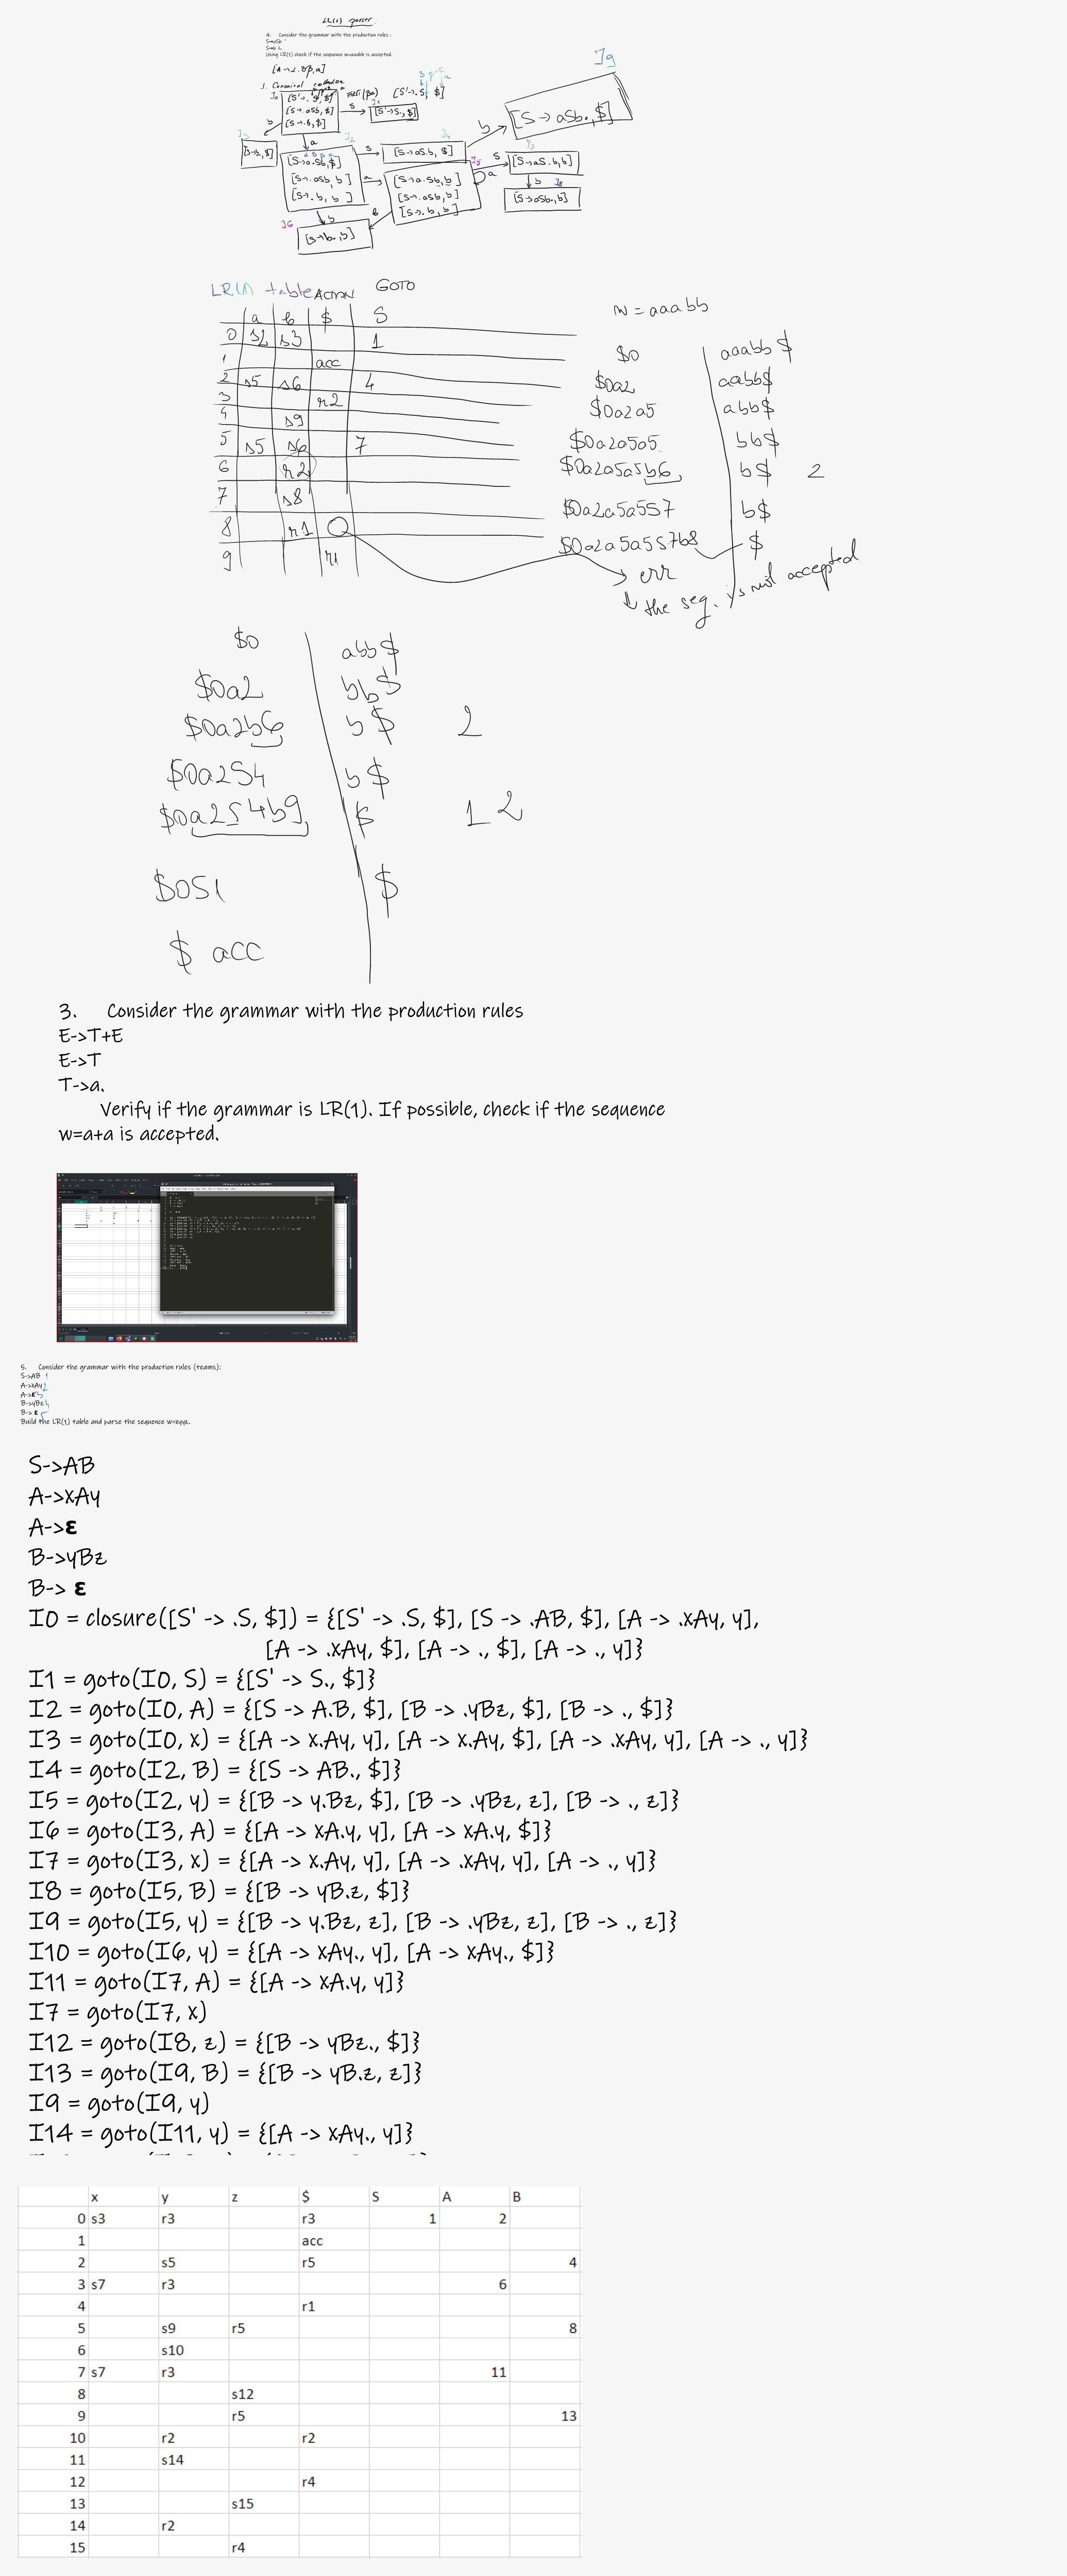 LR(1) parser
4. Consider the grammar with the production rules :
S->aSb
S->b
Using LR(1) check if the sequence w=aaabb is accepted.
[A->α.Bβ,a]
1. Canonical collection
I0
[S'->.S,$]
[S->.aSb,$]
[S->.b,$]
S
I1
[S'->S.,$]
[S'->.S, $]
b
I3
[S->b.,$]
a
I2
[S->a.Sb,$]
[S->.aSb,b]
[S->.b, b]
S
I4
[S->aS.b, $]
b
I9
[S->aSb.,$]
a
I5
[S->a.Sb,b]
[S->.aSb,b]
[S->.b, b]
a
S
I7
[S->aS.b,b]
b
I8
[S->aSb.,b]
b
b
I6
[S->b.,b]
LR(1) table ACTION GOTO
a b $ S
0 s2 s3 1
1 acc
2 s5 s6 4
3 r2
4 s9
5 s5 s6 7
6 r2
7 s8
8 r1
9 r1
w = aaabb
$0 aaabb$
$0a2 aabb$
$0a2a5 abb$
$0a2a5a5 bb$
$0a2a5a5b6 b$ 2
$0a2a5a5S7 b$
$0a2a5a5S7b8 $
err
the seq. is not accepted
$0 abb$
$0a2 bb$
$0a2b6 b$ 2
$0a2S4 b$
$0a2S4b9 $ 1 2
$0S1 $
$ acc
3. Consider the grammar with the production rules
E->T+E
E->T
T->a.
Verify if the grammar is LR(1). If possible, check if the sequence
w=a+a is accepted.
5. Consider the grammar with the production rules (teams):
S->AB 1
A->xAy 2
A->ε 3
B->yBz 4
B-> ε 5
Build the LR(1) table and parse the sequence w=xyyz.
S->AB
A->xAy
A->ε
B->yBz
B-> ε
I0 = closure([S' -> .S, $]) = {[S' -> .S, $], [S -> .AB, $], [A -> .xAy, y],
[A -> .xAy, $], [A -> ., $], [A -> ., y]}
I1 = goto(I0, S) = {[S' -> S., $]}
I2 = goto(I0, A) = {[S -> A.B, $], [B -> .yBz, $], [B -> ., $]}
I3 = goto(I0, x) = {[A -> x.Ay, y], [A -> x.Ay, $], [A -> .xAy, y], [A -> ., y]}
I4 = goto(I2, B) = {[S -> AB., $]}
I5 = goto(I2, y) = {[B -> y.Bz, $], [B -> .yBz, z], [B -> ., z]}
I6 = goto(I3, A) = {[A -> xA.y, y], [A -> xA.y, $]}
I7 = goto(I3, x) = {[A -> x.Ay, y], [A -> .xAy, y], [A -> ., y]}
I8 = goto(I5, B) = {[B -> yB.z, $]}
I9 = goto(I5, y) = {[B -> y.Bz, z], [B -> .yBz, z], [B -> ., z]}
I10 = goto(I6, y) = {[A -> xAy., y], [A -> xAy., $]}
I11 = goto(I7, A) = {[A -> xA.y, y]}
I7 = goto(I7, x)
I12 = goto(I8, z) = {[B -> yBz., $]}
I13 = goto(I9, B) = {[B -> yB.z, z]}
I9 = goto(I9, y)
I14 = goto(I11, y) = {[A -> xAy., y]}
x y z $ S A B
0 s3 r3 r3 1 2
1 acc
2 s5 r5 4
3 s7 r3 6
4 r1
5 s9 r5 8
6 s10
7 s7 r3 11
8 s12
9 r5 13
10 r2 r2
11 s14
12 r4
13 s15
14 r2
15 r4